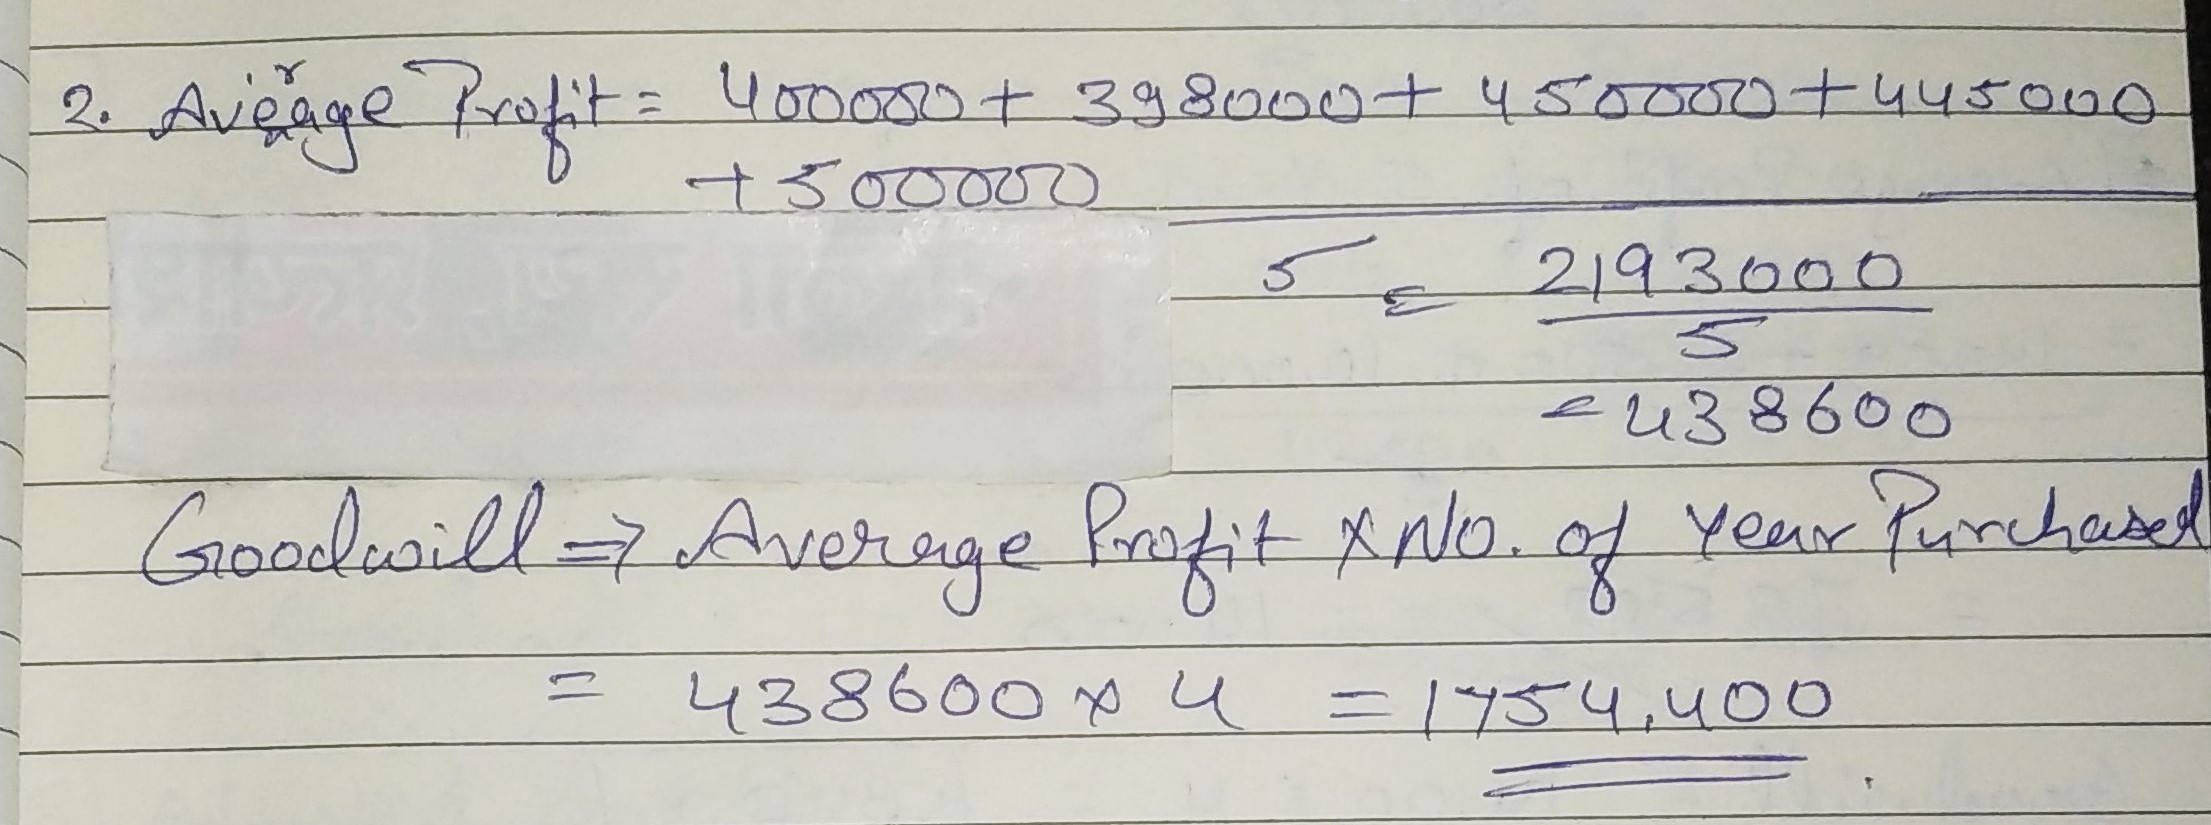 2. Average Profit = 400000 + 398000 + 450000 + 445000
+ 500000
5 = 2193000
5
= 438600
Goodwill => Average Profit x No. of Year Purchased
= 438600 x 4 = 1754,400